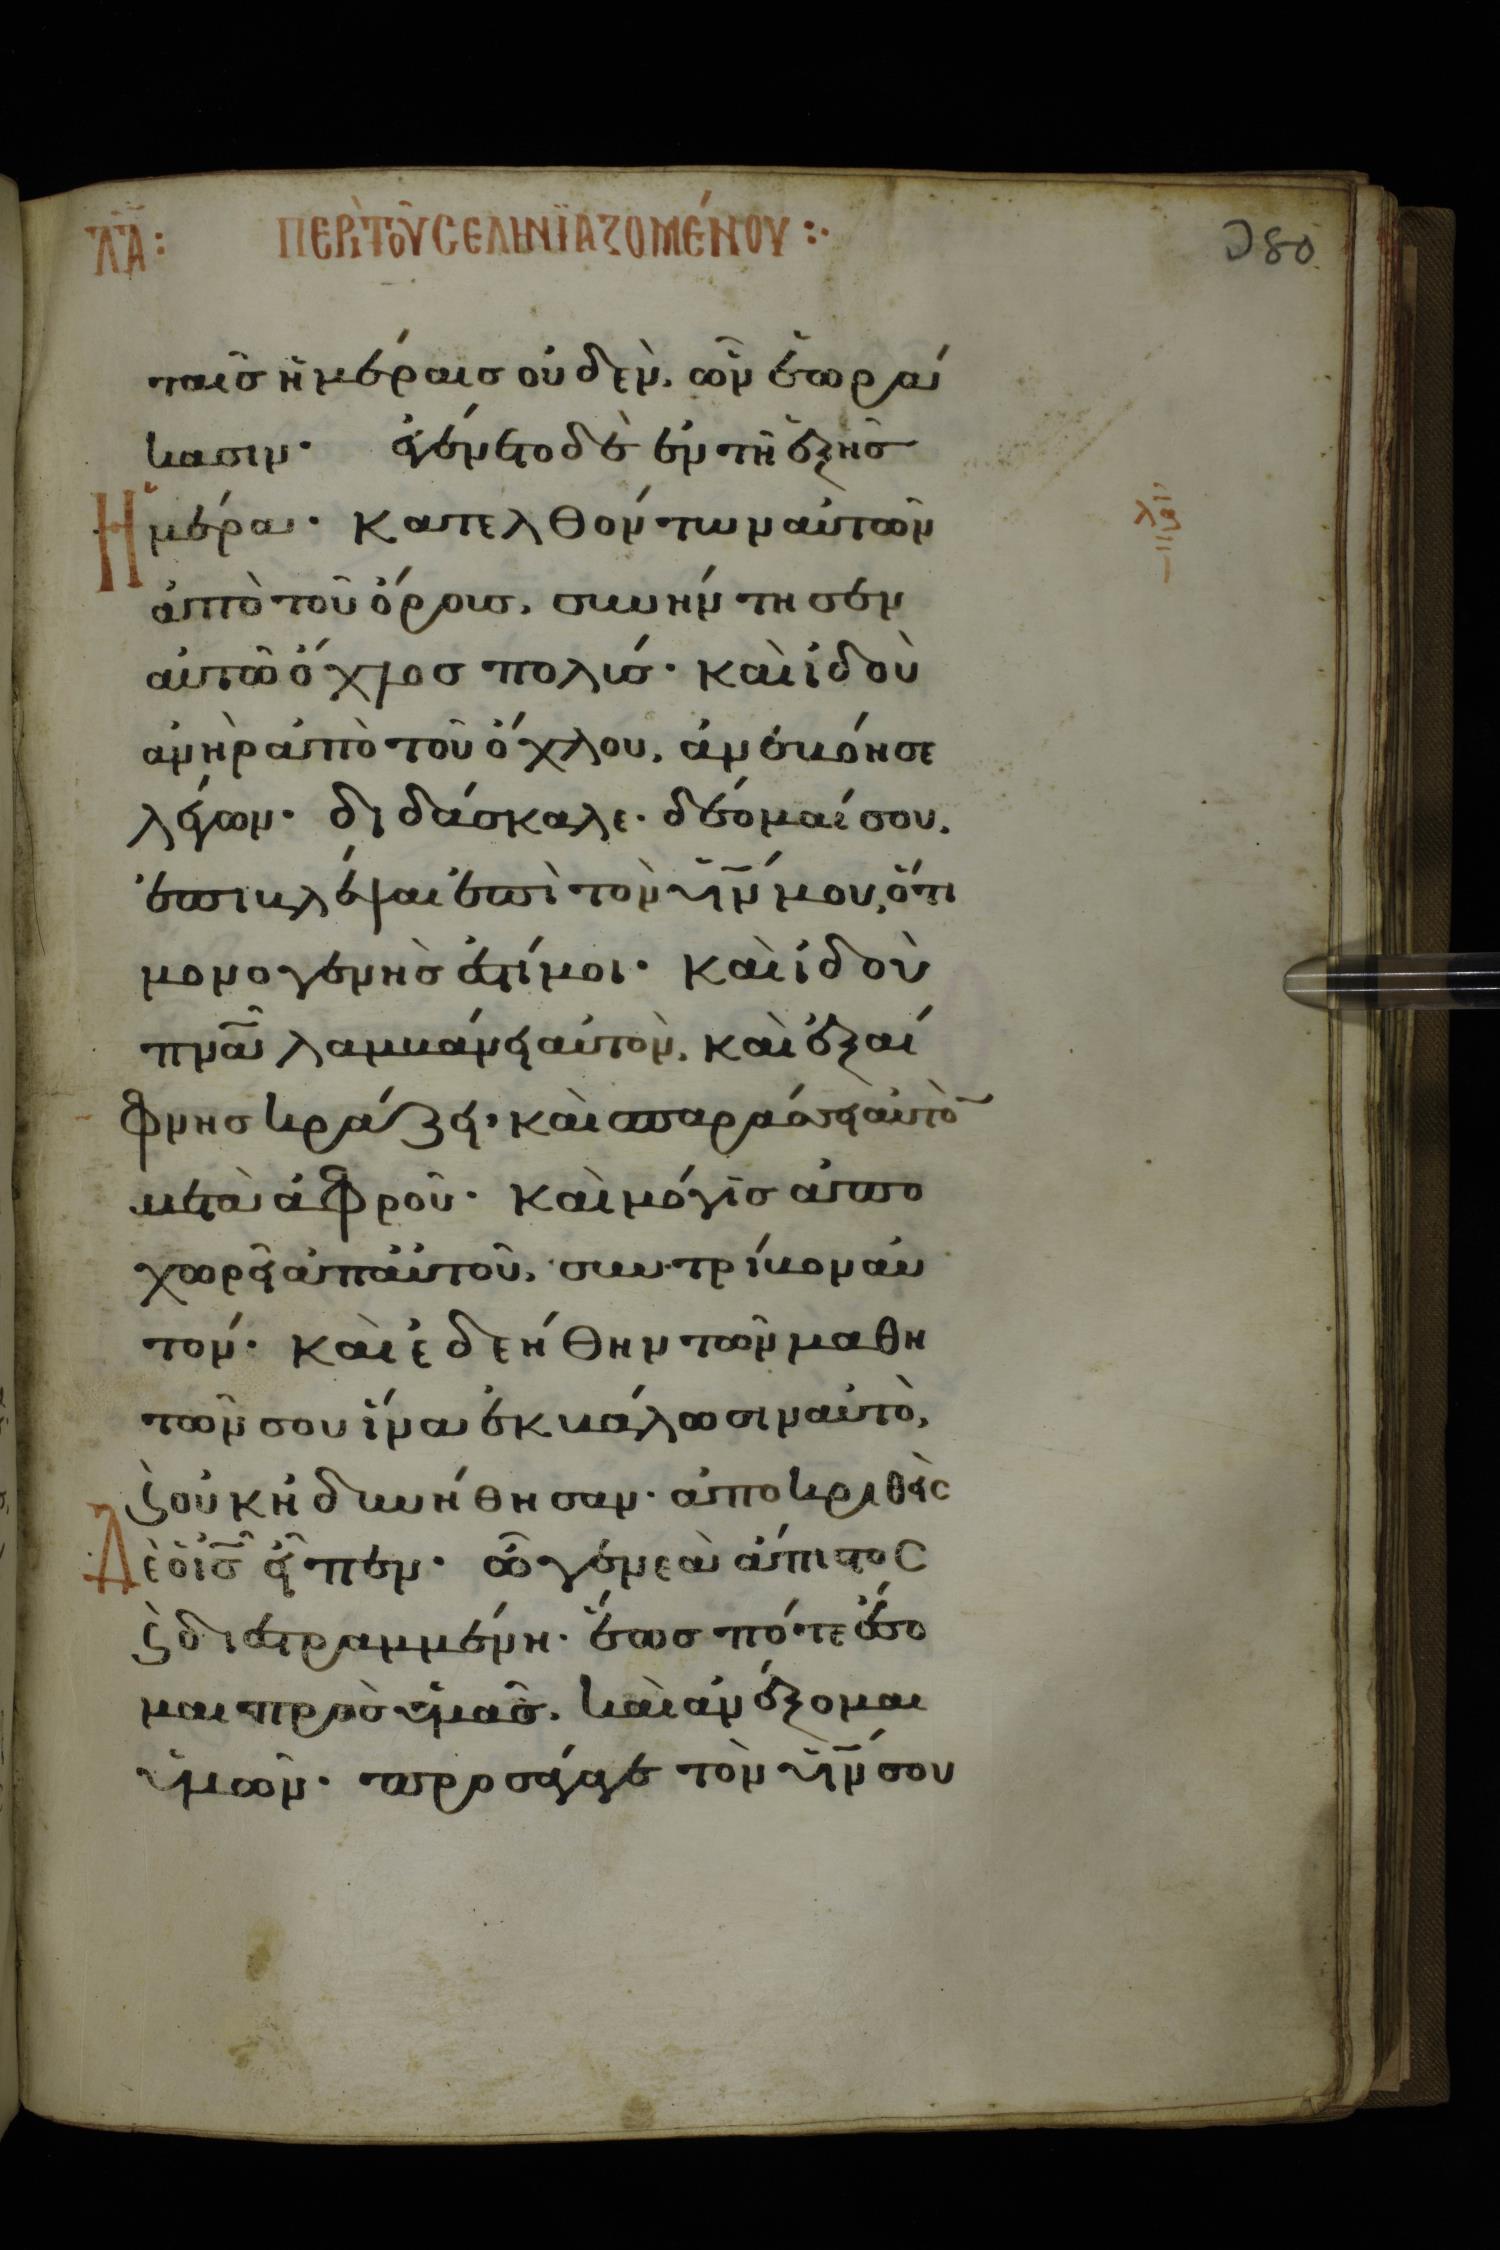 ΛΑ: ΠΕΡῚ ΤΟΥ͂ ΣΕΛΗΝΪΑΖΟΜΈΝΟΥ :·
ταῖσ ἡμέραισ οὐδὲν, ὧν ἑωρά
κασιν· ἐγένετο δὲ ἐν τῆ ἑξῆσ
Ἡμέρα· κατελθόντων αὐτῶν
ἀπὸ τοῦ ὄρουσ, συνήντησεν
αὐτῶ ὄχλοσ πολύσ· καὶ ἰδοὺ
ἀνὴρ ἀπὸ τοῦ ὄχλου, ἀνεβόησε
λέγων· διδάσκαλε· δέομαί σου,
ἐπιβλέψαι ἐπὶ τὸν ὑῖ̄ν μου, ὅτι
μονογενὴσ ἐστί μοι· καὶ ἰδοὺ
πνᾶ λαμβάνει αὐτὸν, καὶ ἐξαί
φνησ κράζει· καὶ σπαράσσει αὐτὸ̄
μετὰ ἀφροῦ· καὶ μόγισ ἀπο
χωρεῖ ἀπ αὐτοῦ, συντρίβον αὐ
τόν· καὶ ἐδεήθην τῶν μαθη
τῶν σου ἵνα ἐκβάλωσιν αὐτὸ,
ϗ οὐκ ἠδυνήθησαν· ἀποκριθεὶς
Δὲ ὁ ις̄ εἶπεν· ὦ γενεὰ ἄπιστος
ϗ διεστραμμένη· ἕωσ πότε ἔσο
μαι πρὸσ ὑμᾶσ, καὶ ἀνέξομαι
ὑμῶν· προσάγαγε τὸν ὑῖ̄ν σου